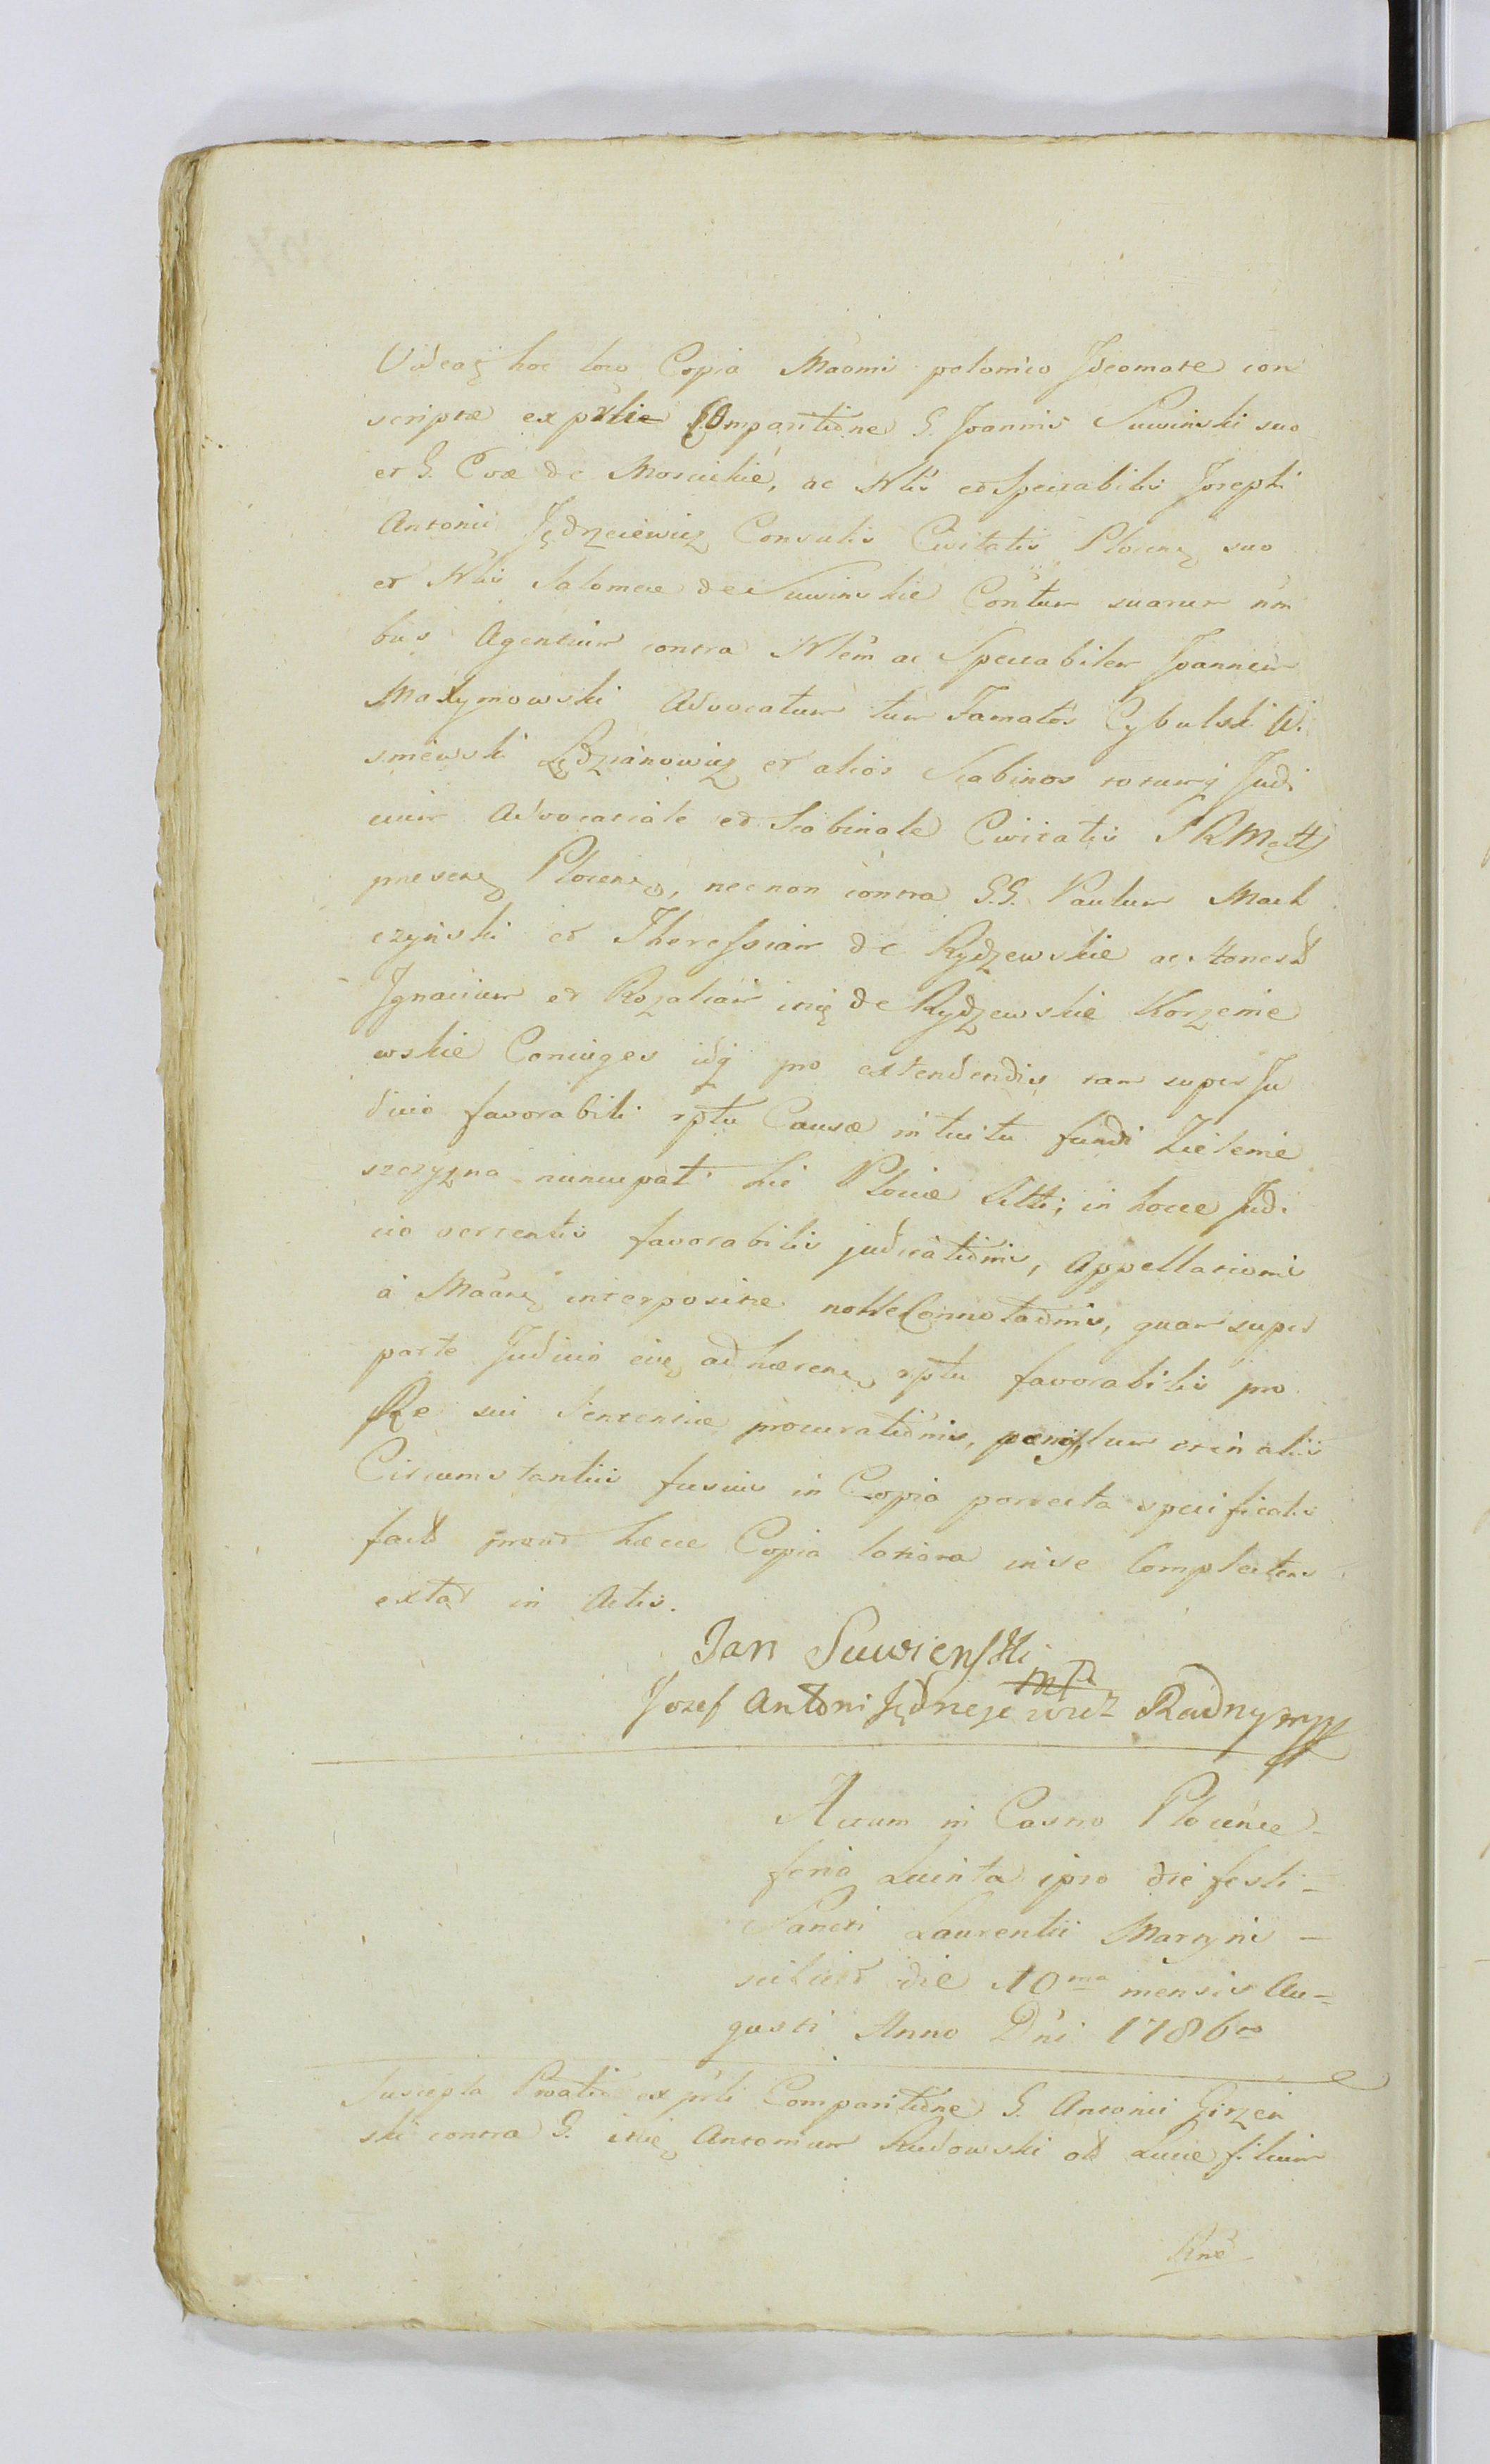 Videaz hoc loco Copia Maõmi polonico Jdeomate con
scriptæ ex pr̃lie Compariti͠one G. Joannis Suwinski suo
et G. Evæ de Moscickie, ac Nłis et Spectabilis Josephi
Antonii Jędrzeiewicz Consulis Civitatis Plocenz suo
et Nłis Salomeæ de Suwinskie Con̄tum suarum n̄m
bus Agentium contra Nłem ac Spectabilem Joannem
Maxymowski Advocatum tum Famatos Cybulski Wi
sniewski Lędzianowicz et alios Scabinos totumq Judi
cium Advocatiale et Scabinale Civitatis S R Mattis
præsenz Plocenz, nec non contra G.G. Paulum Mack
czyński et Theressiam de Rydzewskie ac Honest
Jgnacium et Rozaliam itię de Rydzewskie Korzenie
wskie Coniuges idq pro extendendis tam super Ju
dicio favorabili rp̃tu Causæ intuitu fundi Zielenie
szczyzna nuncupat hic Plociæ sitti; in hocce Judi
cio vertentis favorabilis judicati͠onis, Appellationis
à Maãnz interpositæ nolle Connotãonis, quam super
parte Judicii eię adhærenz rp̃tu favorabilis pro
Re sui Sententiæ procurati͠onis, pænis, tum et in aliis
Circumstantiis fusius in Copia porrecta specificatis
fact prout hæcce Copia latiora in se Complectens
extat in Actis.
Jan Suwienski
mp
Jozef Antoni Jędrzeje wicz Radny mp
Actum in Castro Plocensi
feria Quinta ipso die festi
Sancti Laurentii Martyris
scilicet die 10ma mensis Au=
gusti Anno Dn̄i 1786to
Suscepta P̄vatio ex pr̃li Compariti͠one G. Antonii Girzen
ski contra G. itię Antonium Rudowski ołł Lucæ filium